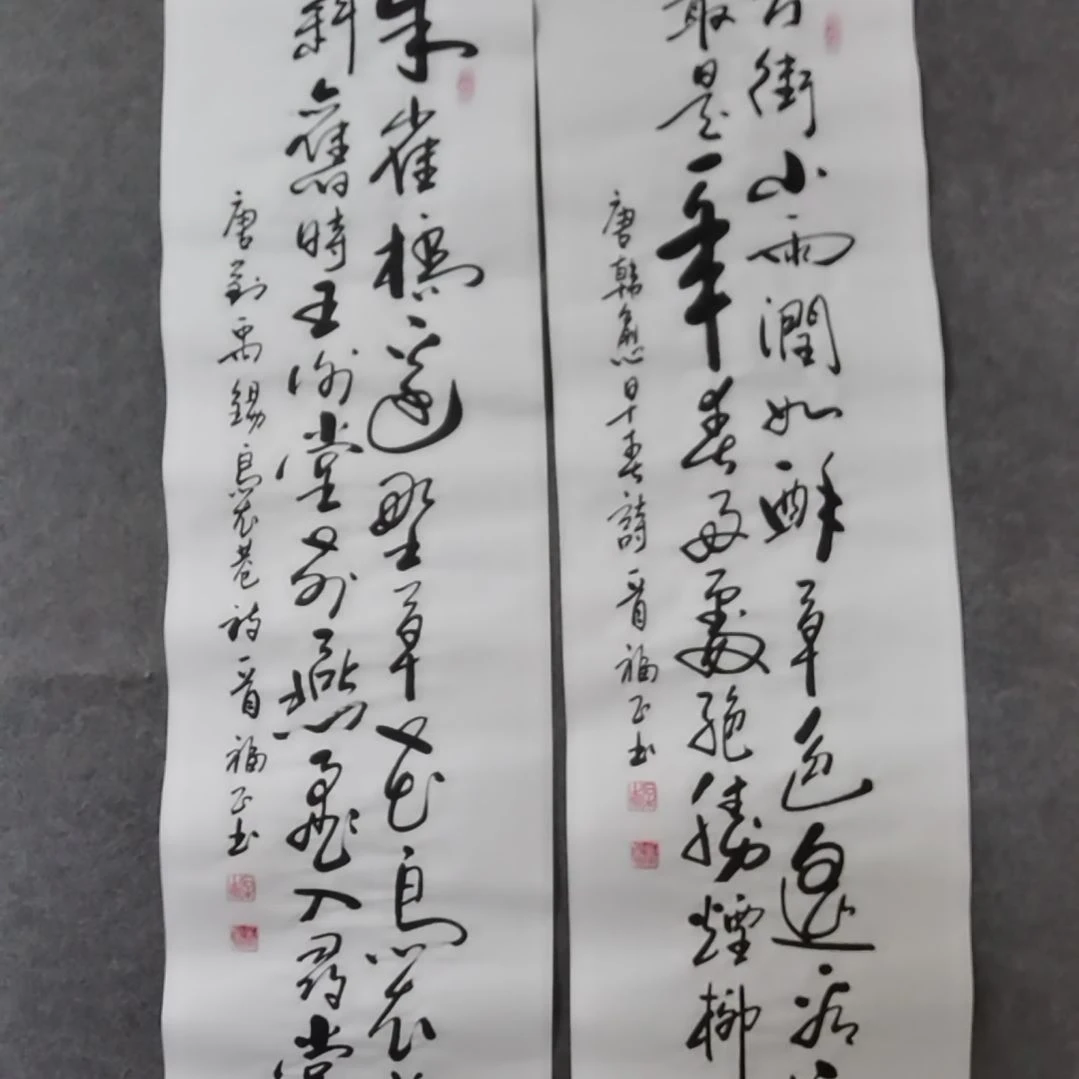 街小雨潤如酥草色遥看
最是一年春好處絕勝煙柳
唐韓愈早春詩一首福正书
朱雀橋邊野草花烏衣
斜舊時王謝堂前燕飛入尋常
唐劉禹錫烏衣巷詩一首福正书